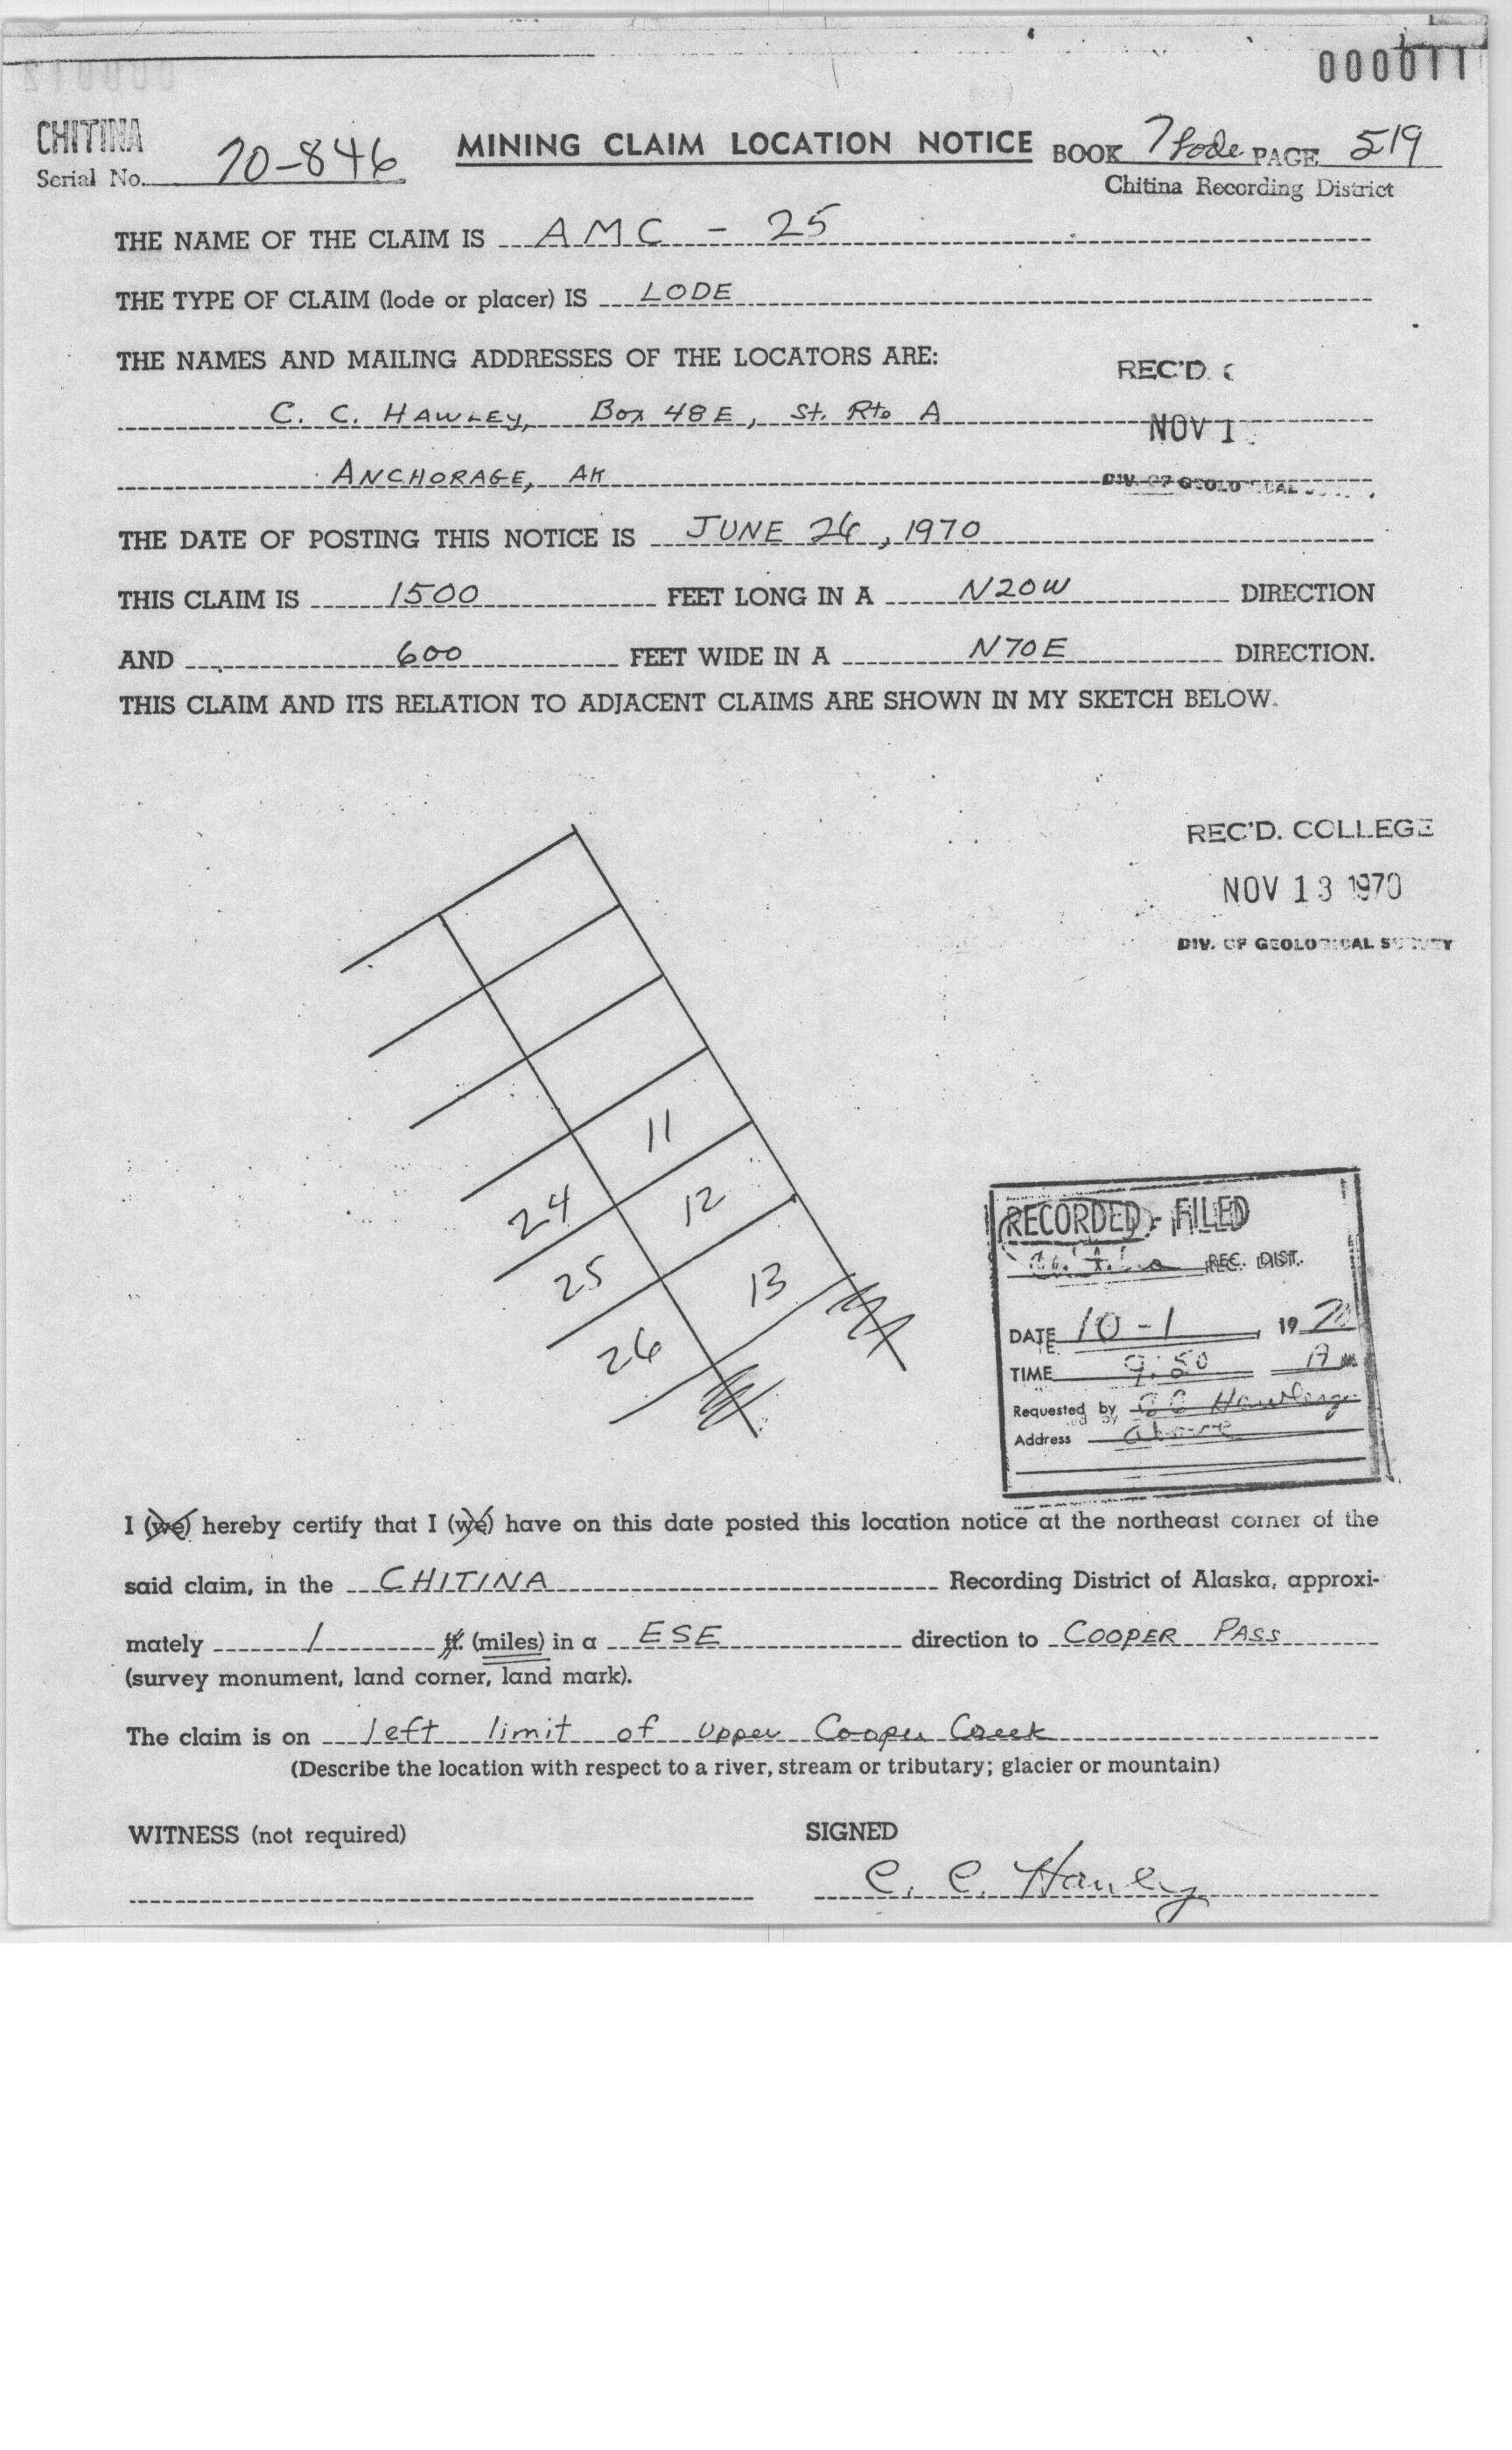 000011
CHITINA
Serial No. 70-846
MINING CLAIM LOCATION NOTICE
BOOK 7 Lode PAGE 519
Chitina Recording District
THE NAME OF THE CLAIM IS AMC - 25
THE TYPE OF CLAIM (lode or placer) IS LODE
THE NAMES AND MAILING ADDRESSES OF THE LOCATORS ARE:
REC'D.
C. C. HAWLEY, Box 48E, St. Rte A
NOV 1
ANCHORAGE, AK
DIV. OF GEOLOGICAL
THE DATE OF POSTING THIS NOTICE IS JUNE 26, 1970
THIS CLAIM IS 1500 FEET LONG IN A N20W DIRECTION
AND 600 FEET WIDE IN A N70E DIRECTION.
THIS CLAIM AND ITS RELATION TO ADJACENT CLAIMS ARE SHOWN IN MY SKETCH BELOW.
REC'D. COLLEGE
NOV 13 1970
DIV. OF GEOLOGICAL SURVEY
11
24 12
25 13
26
RECORDED - FILED
Chitina REC. DIST.
DATE 10-1 1970
TIME 9:50 A M
Requested by CC Hawley
Address above
I (we) hereby certify that I (we) have on this date posted this location notice at the northeast corner of the
said claim, in the CHITINA Recording District of Alaska, approxi-
mately 1 ft. (miles) in a ESE direction to COOPER PASS
(survey monument, land corner, land mark).
The claim is on left limit of upper Cooper Creek
(Describe the location with respect to a river, stream or tributary; glacier or mountain)
WITNESS (not required)
SIGNED
C. C. Hawley